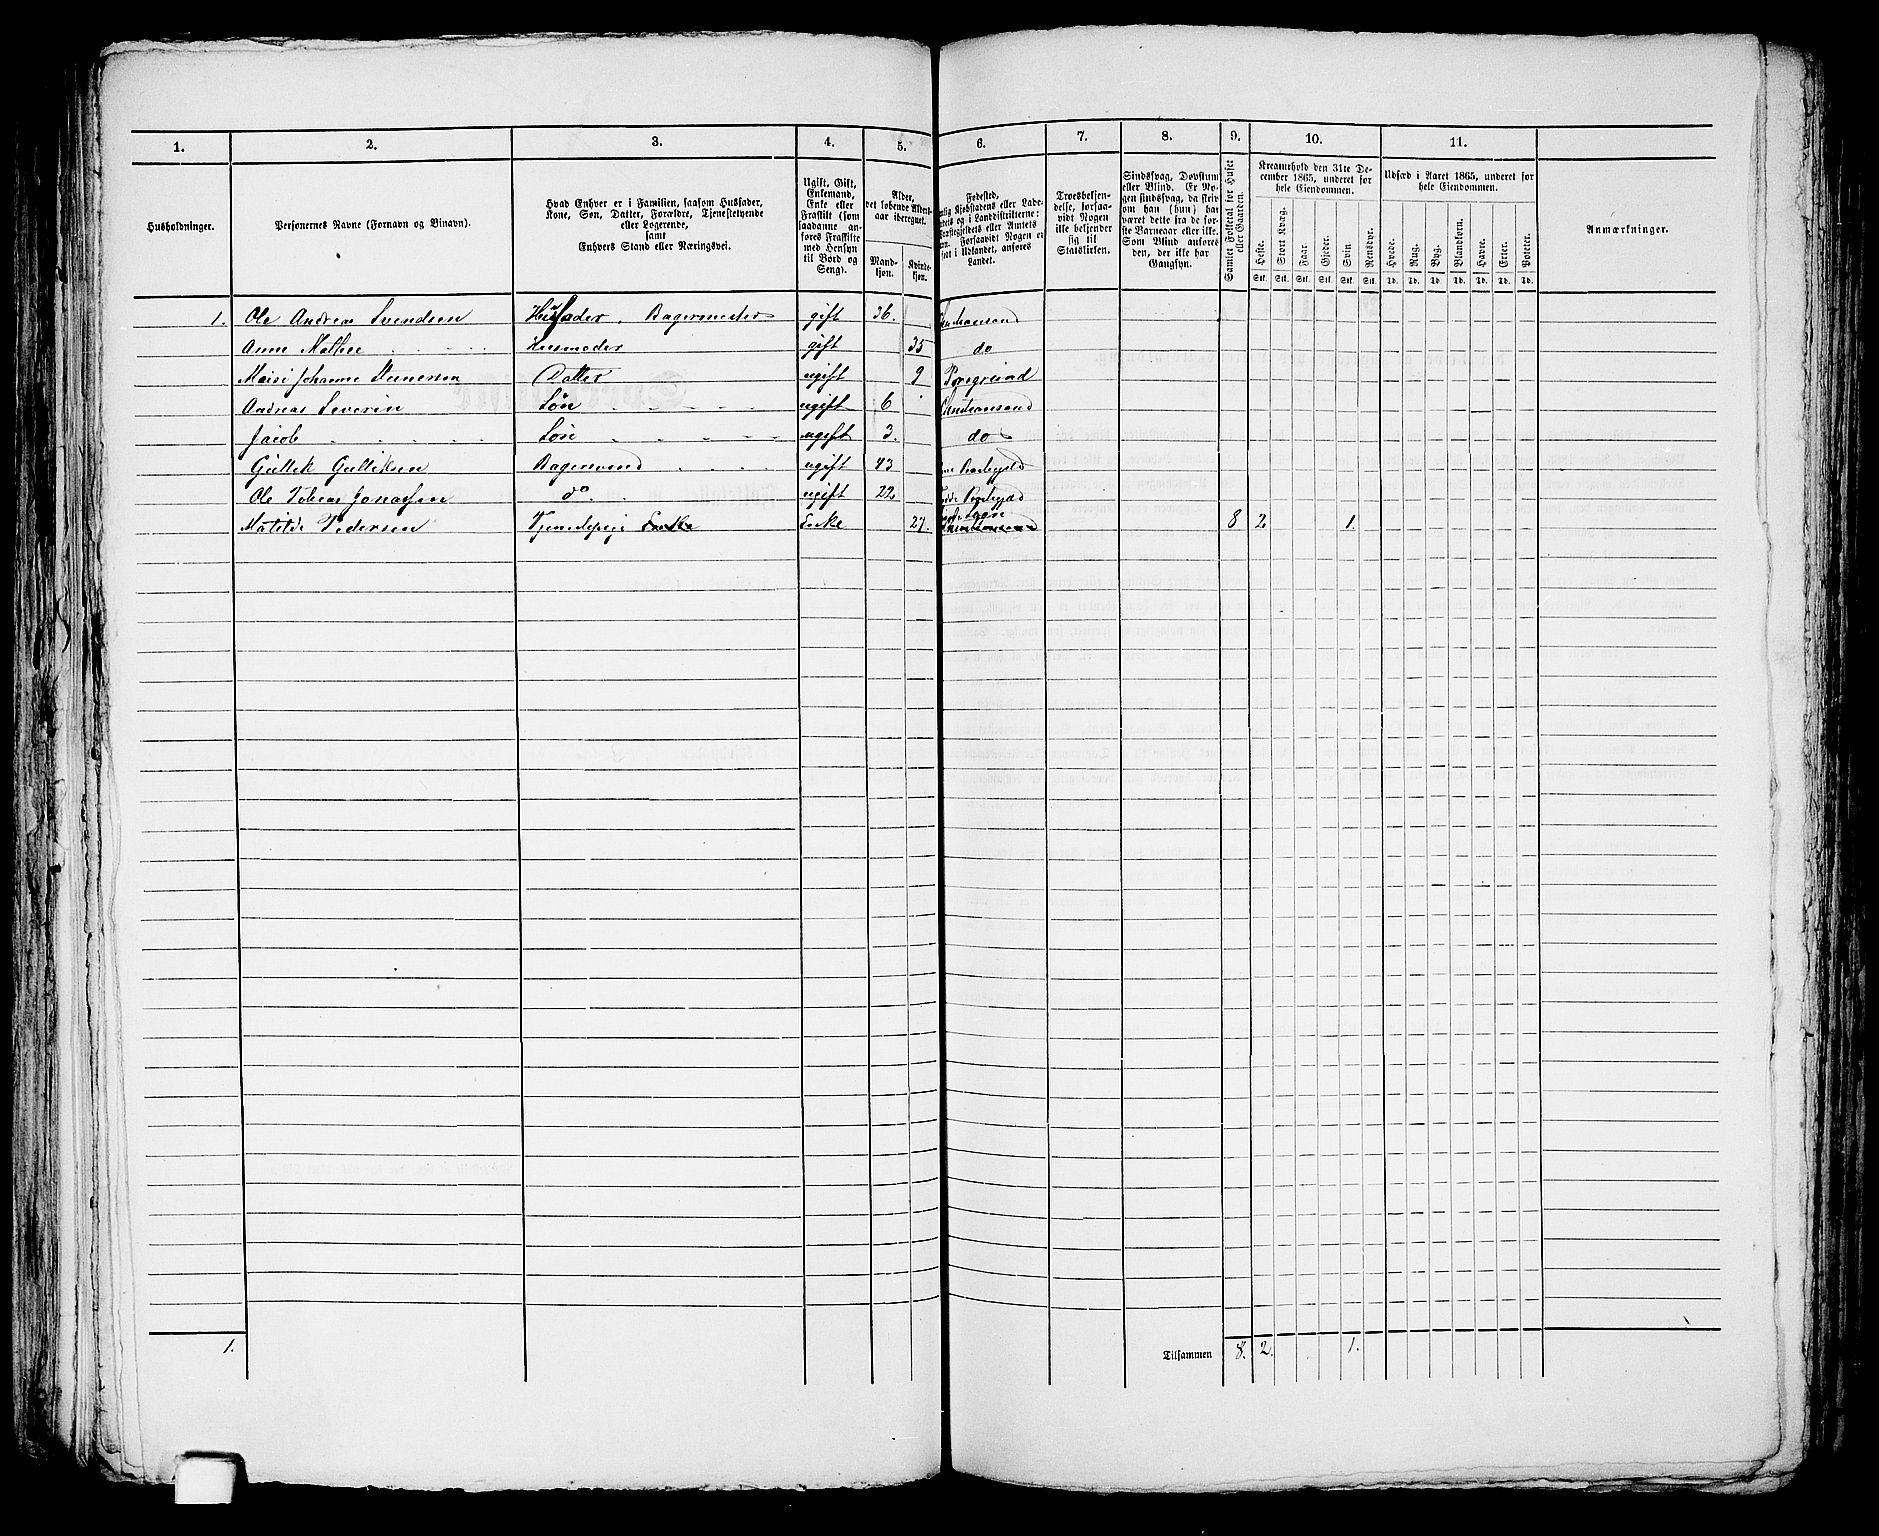 1. 2. 3. 4. 5. 6. 7. 8. 9. 10. 11.
Husholdninger.
Personernes Navne (Fornavn og Binavn).
Hvad Enhver er i Familien, saasom Husfader,
Kone, Søn, Datter, Forældre, Tjenestetyende
eller Logerende,
samt
Enhvers Stand eller Næringsvei.
Ugift, Gift,
Enkemand,
Enke eller
Fraskilt (som
saadanne an-
føres Fraskilte
med Hensyn
til Bord og
Seng).
Alder,
det løbende Alders-
aar iberegnet.
Mand-
kjøn.
Kvinde-
kjøn.
Fødested,
Kjøbstadens eller Lade-
og i Landdistrikterne:
eller Amtets
Forsaavidt Nogen er
født i Udlandet, anføres
Landet.
Troesbekjen-
delse, forsaa-
vidt Nogen
ikke bekjender
sig til
Statskirken.
Sindssvag, Døvstum
eller Blind. Er No-
gen sindssvag, da skriv
om han (hun) har
været dette fra de før-
ste Barneaar eller ikke.
Som Blind anføres
den, der ikke har
Gangsyn.
Samlet Folketal for Huset
eller Gaarden.
Kreaturhold den 31te De-
cember 1865, underet for
hele Eiendommen.
Heste. Stort Kvæg. Faar. Gjeder. Svin. Rensdyr.
Stk. Stk. Stk. Stk. Stk. Stk.
Udsæd i Aaret 1865, underet for
hele Eiendommen.
Hvede. Rug. Byg. Blandkorn. Havre. Erter. Poteter.
Td. Td. Td. Td. Td. Td. Td.
Anmærkninger.
1. Ole Andreas Svendsen Husfader, Bagermester gift 36.
Anne Mathee Huusmoder gift 35 do
Johanne Datter ugift 9
Andreas Severin Søn ugift 6
Jacob ugift 3. do
Gullik Gulliksen Bagersvend ugift 43
Ole Tobias Jonassen do ugift 22
Matilde Pedersen Tjenestepige Enke Enke 27. 8 2 1.
1. Tilsammen 8. 2. 1.